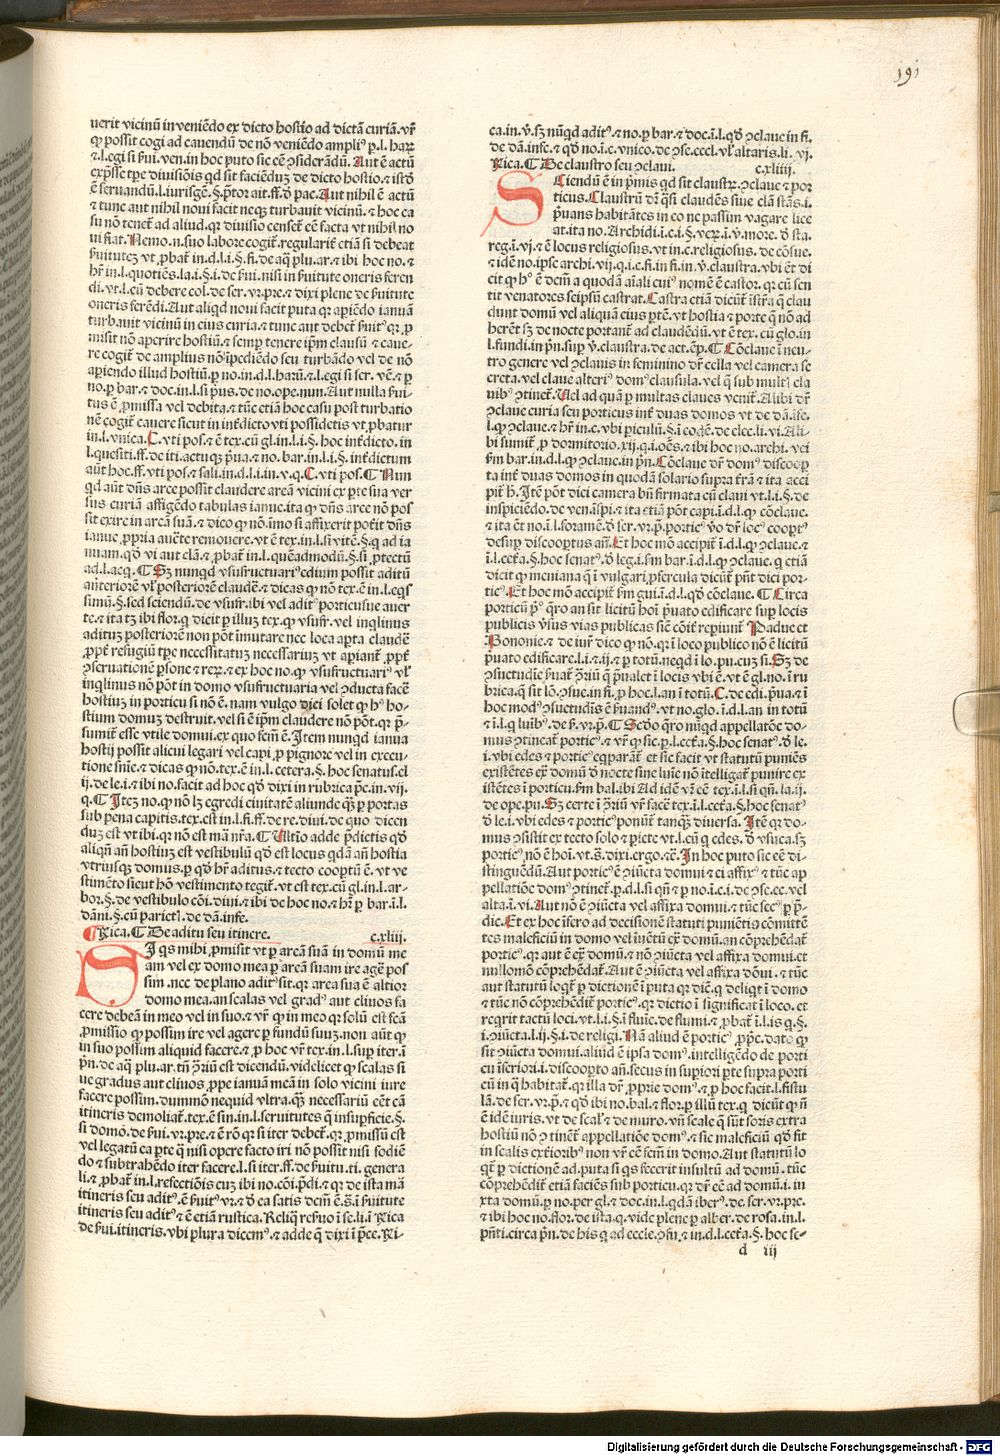 191
uerit vicinū in veniēdo ex dicto hostio ad dictā curiā. vr̄
ꝙ possit cogi ad cauendū de nō veniēdo ampliꝰ ꝑ.l. haꝝ
⁊.l.egi si s̄ui. ven. in hoc puto sic eē ɔ̄siderādū. Aut ē actū
exp̄sse tꝑe diuisiōis qd sit faciēduȝ de dicto hostio.⁊ istđ
ē seruandū.l.iurisgē.§.p̄tor ait.ff.đ pac. Aut nihil ē actū
⁊ tunc aut nihil noui facit neqȝ turbauit vicinū.⁊ hoc ca
su nō tenet̄ ad aliud. qr diuisio censet̄ eē facta vt nihil no
ui fiat. Nemo.n. suo labore cogit̄. regularit̄ etiā si debeat
s̄uitutez vt ꝓbat̄ in.d.l.i.§.fi.de aq̄ plu.ar.⁊ ibi hoc no.⁊
hr̄ in.l.quotiēs.la.i.§.i.de s̄ui. nisi in s̄uitute oneris feren
di. vt.l.eū debere col. de ser. vr. pre.⁊ dixi plene de s̄uitute
oneris ferēdi. Aut aliqd noui facit puta qr apiēdo ianuā
turbauit vicinū in eius curia.⁊ tunc aut debet̄ s̄uitꝰ qr ꝓ
misit nō aperire hostiū.⁊ semꝑ tenere ip̄m clausū ⁊ caue-
re cogit̄ de amplius nō īpediēdo seu turbādo vel de nō
apiendo illud hostiū. ꝑ no. in.d.l. harū.⁊.l.egi si ser. vē.⁊ ꝑ
no. ꝑ bar.⁊ doc. in.l.si p̄us. de no. ope. nun. Aut nulla s̄ui-
tus ē ꝓmissa vel debita.⁊ tūc etiā hoc casu post turbatio
nē cogit̄ cauere sicut in int̄dicto vti possidetis vt ꝓbatur
in.l.vnica. C. vti pos.⁊ ē tex. cū gl. in.l.i.§. hoc int̄dicto. in
.l.quesiti.ff.de iti. actuqȝ p̄ua.⁊ no. bar. in.l.i.§. int̄dictum
aūt hoc.ff. vti pos.⁊ sali. in.d.l.i. in.v.q. C. vti pos. ¶ Nun
qd aut dn̄s arce possit claudere areā vicini ex pte sua ver
sus curiā affigēdo tabulas ianue. ita ꝙ dn̄s arce nō pos
sit exire in areā suā.⁊ dico ꝙ nō. imo si affixerit poterit dn̄s
ianue ꝓpria aucte remouere. vt ē tex. in.l.si vitē.§. q̄ ad ia
nuam. qđ vi aut clā.⁊ ꝓbat̄ in.l.quēadmodū.§. si ꝓtectū
ad.l.aq. ¶ Sȝ nunqd vsufructuariꝰ edium possit aditū
anteriorē vl' posteriorē claudē.⁊ dicas ꝙ nō tex. ē in.l.eqs
simū.§. sed sciendū. de vsufr. ibi vel aditꝰ porticusue auer
te.⁊ ita tȝ ibi flor. q̄ dicit ꝑ illuȝ tex. ꝙ vsufr. vel inqlinus
adituȝ posteriorē non pōt imutare nec loca apta claudē
ꝓpt̄ refugiū tꝑe necessitatuȝ necessariuȝ vt apiant̄ ꝓpt̄
ɔseruationē psone ⁊ reꝝ.⁊ ex hoc no. ꝙ vsufructuariꝰ vl'
inqlinus nō pōt in domo vsufructuaria vel ɔducta facē
hostiuȝ in porticu si nō ē. nam vulgo dici solet ꝙ hꝰ ho-
stium domuȝ destruit. vel si ē ip̄m claudere nō pōt. qr p̄-
sumit̄ esse vtile domui. ex quo fcm̄ ē. Item nunqd ianua
hostij possit alicui legari vel capi ꝓ pignore vel in execu-
tione sn̄ie.⁊ dicas ꝙ nō. tex. ē in.l.cetera.§. hoc senatus. el
ij. de le.i.⁊ ibi no. facit ad hoc qđ dixi in rubrica p̄c. in. vij.
q. ¶ Iteȝ no. ꝙ nō lȝ egredi ciuitatē aliunde qȝ ꝑ portas
sub pena capitis. tex. est in.l.fi.ff. de re. diui. de quo dicen
duȝ est vt ibi. qr nō est mā nr̄a. ¶ Vltīo adde p̄dictis qđ
aliqn̄ an̄ hostiuȝ est vestibulū qđ est locus qdā an̄ hostia
vtriusqȝ domus. ꝑ qđ hr̄ aditus.⁊ tecto coopertū ē. vt ve
stimēto sicut hō vestimento tegit̄. vt est tex. cū gl. in.l.ar-
bor.§. de vestibulo cōi. diui.⁊ ibi de hoc no.⁊ hr̄ ꝑ bar. ī.l.
dāni.§. cū parieti. de dā. infe.
Rica. ¶ De aditu seu itinere. c.xliii.
SI qs mihi ꝓmisit vt ꝑ areā suā in domū me
am vel ex domo mea ꝑ areā suam ire agē pos
sim. nec de plano aditꝰ sit. qr area sua ē altior
domo mea. an scalas vel gradꝰ aut cliuos fa
cere debeā in meo vel in suo.⁊ vr̄ ꝙ in meo qr solū est fcā
ꝓmissio ꝙ possim ire vel agere ꝑ fundū suuȝ. non aūt ꝙ
in suo possim aliquid facere.⁊ ꝓ hoc vr̄ tex. in.l.suꝑ iter. ī
pn̄. de aq̄ plu. ar. tn̄ ɔ̄riū est dicendū. videlicet ꝙ scalas si
ue gradus aut cliuos ꝓpe ianuā meā in solo vicini iure
facere possim. dummō nequid vltra q̄ȝ necessariū eēt cā
itineris demoliat̄. tex. ē sin. in.l.seruitutes q̄ in supficie.§.
si domo. de s̄ui. vr. pre.⁊ ē rō qr si iter debet̄. qr ꝓmissū est
vel legatū ea pte q̄ nisi opere facto iri nō possit nisi fodiē
do ⁊ subtrahēdo iter facere.l.si iter.ff. de s̄uitu. ti. genera
li.⁊ ꝓbat̄ in.l.refectiōis cuȝ ibi no. cōi. p̄di.⁊ qr de ista mā
itineris seu aditꝰ. ē s̄uitꝰ vr.⁊ đ ea satis dcm̄ ē. s̄. ī s̄uitute
itineris seu aditꝰ ⁊ ē etiā rustica. Reliq̄ res̄uo ī se. li. ī Rica
de s̄ui. itineris. vbi plura dicemꝰ.⁊ adde q̄ dixi ī p̄ce. Ri-
ca. in. v̄. sȝ nūqd aditꝰ.⁊ no. ꝑ bar.⁊ doc. ī.l. qđ ɔclaue in fi.
de dā. infe.⁊ qđ no. ī.c. vnico. de ɔse. eccl. vl' altaris. li. vi.
Rica. ¶ De claustro seu ɔclaui. c.xliiii.
SCiendū ē in pri̇mis qd sit claustꝝ. ɔclaue ⁊ por
ticus. Claustrū dr̄ q̄si claudēs siue clā stās. i.
p̄uans habitātes in eo ne passim vagare lice
at. ita no. Archidi. ī.c.i.§. veꝝ. ī. v̄. more. đ sta.
reg. ī. vj.⁊ ē locus religiosus. vt in.c. religiosus. de cōsue.
⁊ idē no. ipse archi. vij. q.i.c. fi. in fi. in. v̄. claustra. vbi ēt di
cit ꝙ hꝰ ē dcm̄ a quodā aiali cuiꝰ nomē ē castor. qr cū sen
tit venatores seipsū castrat. Castra etiā dicūt̄ īstr̄a q̄ clau
dunt domū vel aliquā eius ptē. vt hostia ⁊ porte q̄ nō ad
herēt sȝ de nocte portant̄ ad claudēdū. vt ē tex. cū glo. in
.l.fundi. in pn̄. suꝑ v̄. claustra. de act. ēp. ¶ Cōclaue ī neu-
tro genere vel ɔclauis in feminino dr̄ cella vel camera se
creta. vel claue alteriꝰ domꝰ clausula. vel q̄ sub multꝭ cla
uibꝰ ɔtinet̄. Vel ad quā ꝑ multas claues venit̄. Alibi dr̄
ɔclaue curia seu porticus int̄ duas domos vt de dā. ife.
.l. ꝙ ɔclaue.⁊ hr̄ in.c. vbi piculū.§. ī eodē. de elec. li. vi. Ali-
bi sumit̄ ꝓ dormitorio. xij. q.i. oēs.⁊ ibi hoc no. archi. vel
s̄m bar. in.d.l. ꝙ ɔclaue. in pn̄. Cōclaue dr̄ domꝰ discooꝑ
ta int̄ duas domos in quodā solario supra tr̄ā ⁊ ita acci
pit̄ h̄. Itē pōt dici camera bn̄ firmata cū claui vt.l.i.§. de
inspiciēdo. de ven. īspi.⁊ ita etiā pōt capi. ī.d.l. ꝙ cōclaue.
⁊ ita ēt no. ī.l.foramē. đ ser. vr. p̄. porticꝰ vo dr̄ locꝰ cooptꝰ
desuꝑ discoopertus an̄. Et hoc mō accipit̄ ī.d.l. ꝙ ɔclaue.⁊
ī.l.cet̄a.§. hoc senatꝰ. đ leg. i. s̄m bar. ī.d.l. ꝙ ɔclaue. q̄ etiā
dicit ꝙ meniana q̄ ī vulgari ꝓfercula dicūt̄ pn̄t dici por-
ticꝰ. Et hoc mō accipit̄ s̄m gui. ī.d.l. qđ cōclaue. ¶ Circa
porticū pꝰ q̄ro an sit licitū hoī p̄uato edificare suꝑ locis
publicis v̄sus vias publicas sic̄ cōit̄ repiunt̄ Padue et
Bononie.⁊ de iur̄ dico ꝙ nō. qr ī loco publico nō ē licitū
p̄uato edificare.l.i.⁊.ij.⁊ ꝑ totū. neqd ī lo. pu. cuȝ si. Sȝ de
ɔsuetudīe s̄uat̄ ɔ̄riū q̄ p̄ualet ī locis vbi ē. vt ē gl. no. ī ru
brica. q̄ sit lō. ɔsue. in fi. ꝓ hoc.l.an ī totū. C. de edi. p̄ua.⁊ ī
hoc modꝰ ɔsuetudīs ē s̄uandꝰ. vt no. glo. ī.d.l. an in totū
⁊ ī.l. q̄ luib꜠. de s̄. vr. p̄. ¶ Sc̄do q̄ro nūqd appellatōe do-
mus ɔtineat̄ porticꝰ.⁊ vr̄ ꝙ sic. ꝑ.l.cet̄a.§. hoc senatꝰ. đ le.
i. vbi edes ⁊ porticꝰ eqparāt̄.⁊ sic̄ facit vt statutū puniēs
existētes ex̄ domū đ nocte sine luīe nō ītelligat̄ punire ex
istētes ī porticu. s̄m bal. ibi. Ad idē vr̄ eē tex. ī.l. si qn̄. la. ij.
de ope. pu. Sȝ certe ī ɔ̄riū vr̄ facē tex. ī.l.cet̄a.§. hoc senatꝰ
đ le. i. vbi edes ⁊ porticꝰ ponūt̄ tanqȝ diuersa. Itē qr do-
mus ɔsistit ex tecto solo ⁊ piete vt.l.eū q̄ edes. đ vsuca. sȝ
porticꝰ nō ē hoī. vt. s̄. dixi. ergo. ⁊c̄. In hoc puto sic eē di-
stinguēdū. Aut porticꝰ ē ɔiūcta domui ⁊ ei affixꝰ ⁊ tūc ap
pellatiōe domꝰ ɔtinet̄. ꝑ.d.l. si qn̄.⁊ ꝑ no. ī.c.i. de ɔse. ec. vel
alta. ī. vi. Aut nō ē ɔiūcta vel affixa domui.⁊ tūc secꝰ ꝑ p̄-
dic. Et ex hoc īfero ad decisionē statuti puniētis cōmittē
tes maleficiū in domo vel iuxta ex̄ domū. an cōprehēdat̄
porticꝰ. qr aut ē ex̄ domū.⁊ nō ɔiūcta vel affixa domui. et
nullomō cōprehēdat̄. Aut ē ɔiūcta vel affixa dōui.⁊ tūc
aut statutū loqt̄ ꝑ dictionē ī puta qr dic̄. q̄ deliqt̄ ī domo
⁊ tūc nō cōprehēdit̄ porticꝰ. qr dictio ī significat ī loco. et
reqrit tactū loci. vt.l.i.§.i. fluuīe. de flumi.⁊ ꝓbat̄ ī.l. is q̄.§.
i. ɔiūcta.l.ij.§.i. de religi. Nā aliud ē porticꝰ ꝓp̄e. dato ꝙ
sit ɔiūcta domui. aliud ē ipsa domꝰ. intelligēdo de porti
cu īferiori. i. discooperto an̄. secus in supiori pte supra porti
cū in q̄ habitat̄. qr illa dr̄ ꝓprie domꝰ.⁊ ꝓ hoc facit.l. fistu
lā. de ser. vr. p̄.⁊ qđ ibi no. bal.⁊ flor. ꝑ illū tex. q̄ dicūt ꝙ n̄
ē idē iuris. vt de scalꝭ ⁊ de muro. vn̄ scale q̄ sūt foris extra
hostiū nō ɔtinet̄ appellatiōe domꝰ.⁊ sic maleficiū qđ fit
in scalis ext̄ioribꝰ non vr̄ eē fcm̄ in domo. Aut statutū lo
qt̄ ꝑ dictionē ad. puta si qs fecerit insultū ad domū. tūc
cōprehēdit̄ etiā faciēs sub porticu. qr dr̄ eē ad domū. i. iu
xta domū. ꝑ no. per gl.⁊ doc. in.l. qdā iberꝰ. de. ser. vr. pre.
⁊ ibi hoc no. flor. de ista. q. vide plene ꝑ alber. de rosa. in.l.
pn̄ti. circa pn̄. de his q̄ ad eccle. ɔfu.⁊ in.d.l.cet̄a.§. hoc se-
d iij
Digitalisierung gefördert durch die Deutsche Forschungsgemeinschaft - DFG